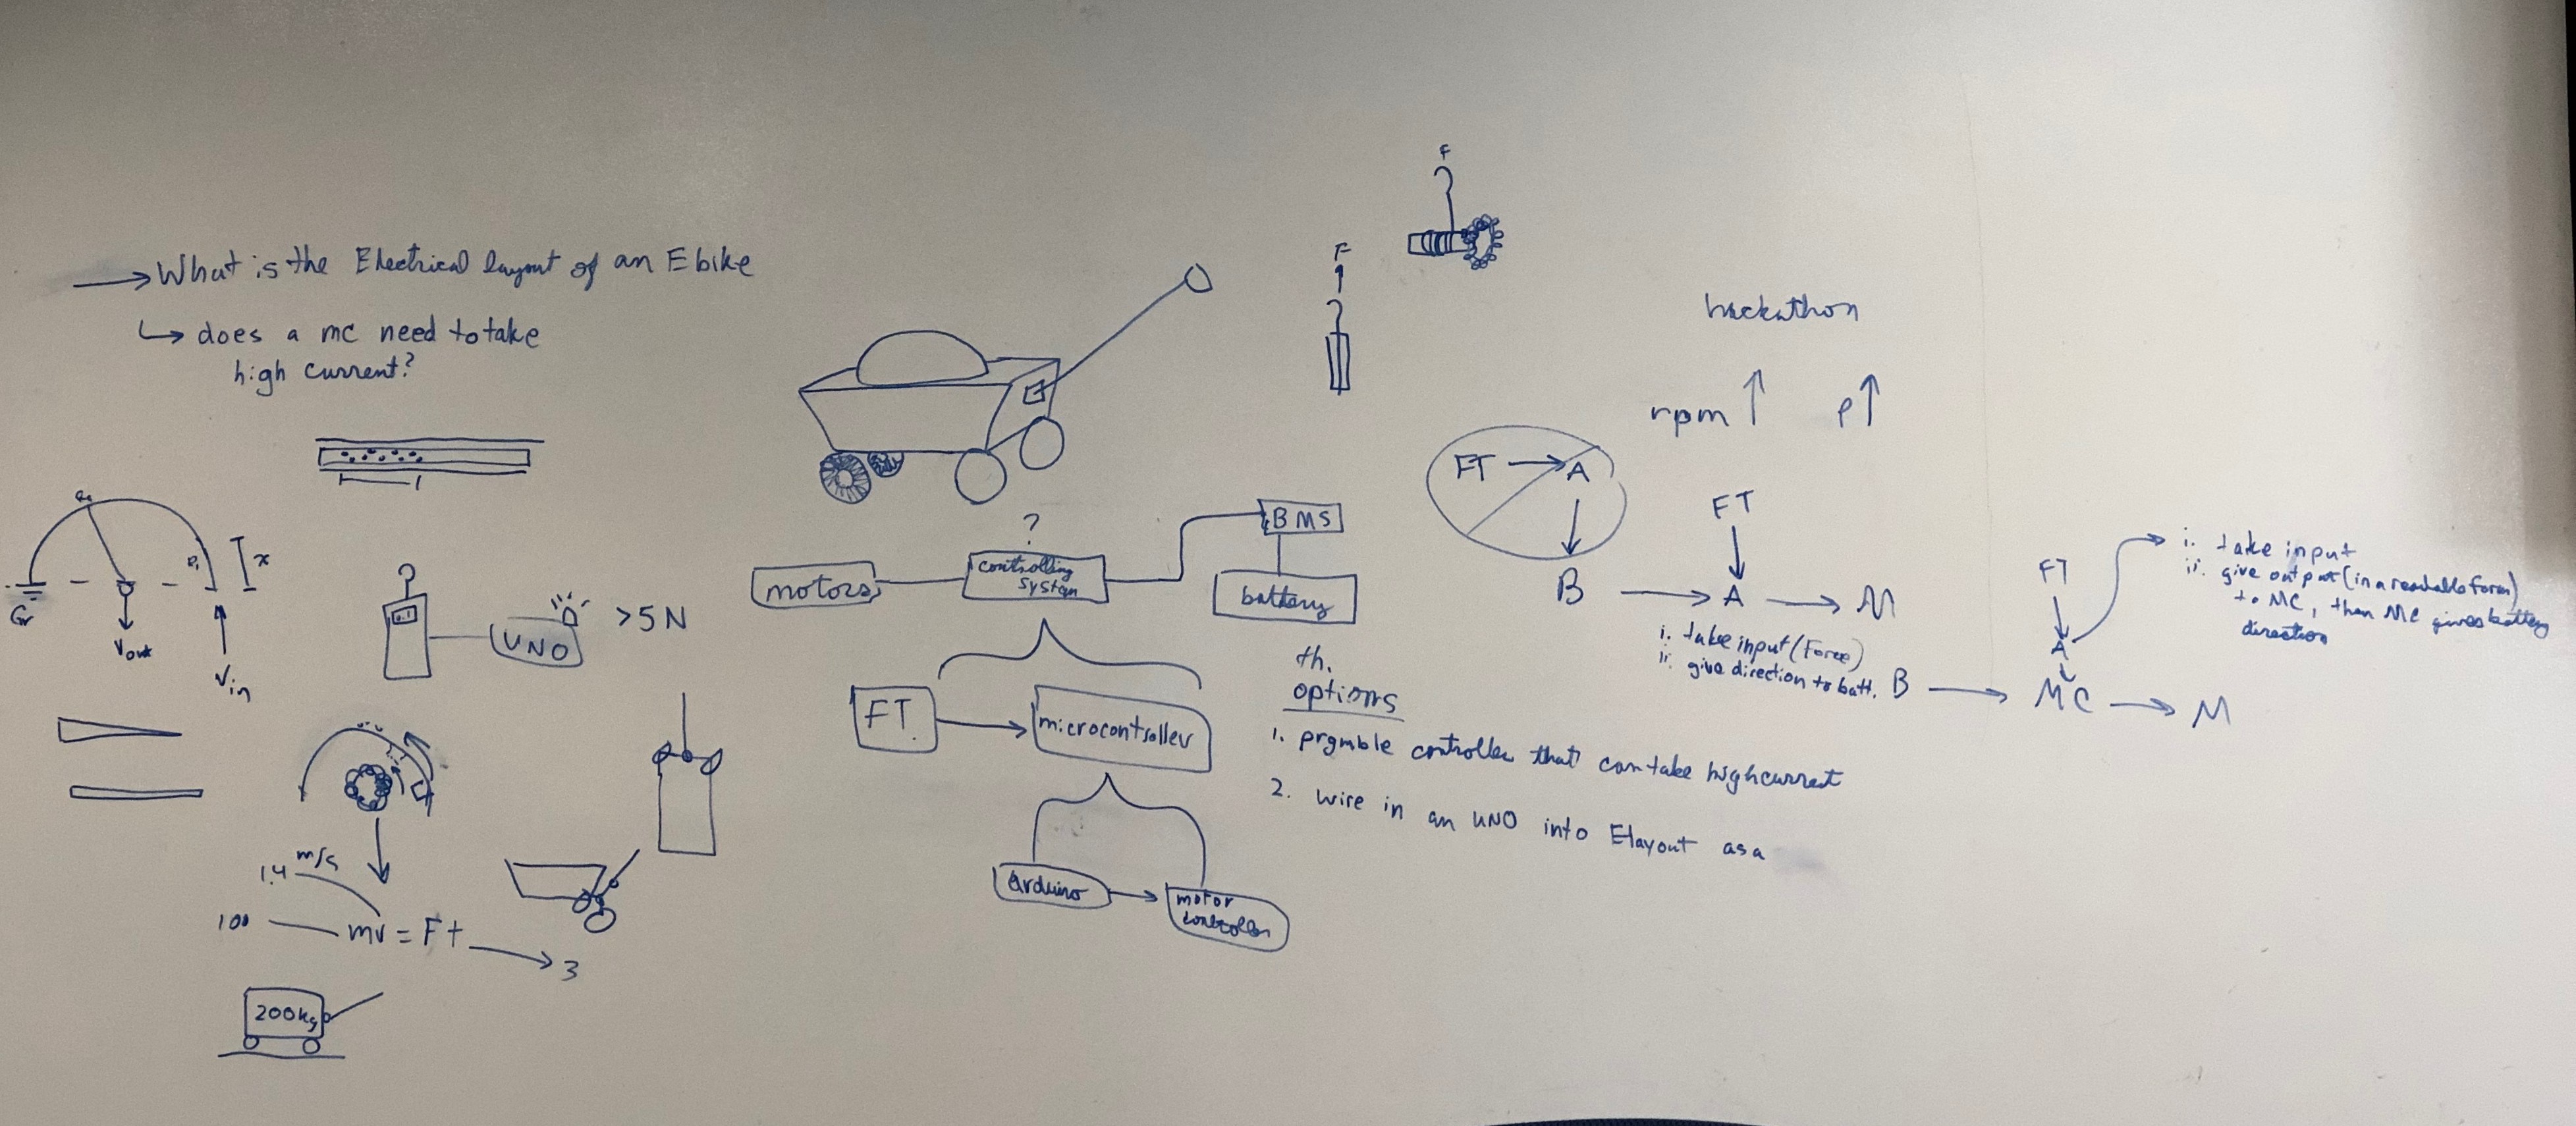 What is the Electrical layout of an Ebike
does a mc need to take
high current?
Gr
Vout
Vin
x
UNO
>5N
1.4 m/s
100
mv = Ft
3
200kg
F
F
?
motors
controlling
system
BMS
battery
FT.
microcontroller
arduino
motor
controller
th.
options
1. prgmble controller that can take high current
2. wire in an UNO into Elayout as a
hackathon
rpm ↑ P ↑
FT → A
B
FT
A → M
i. take input (Force)
ii. give direction to batt.
FT
A
B → MC → M
i. take input
ii. give output (in a readable form)
to MC, than MC gives battery
direction